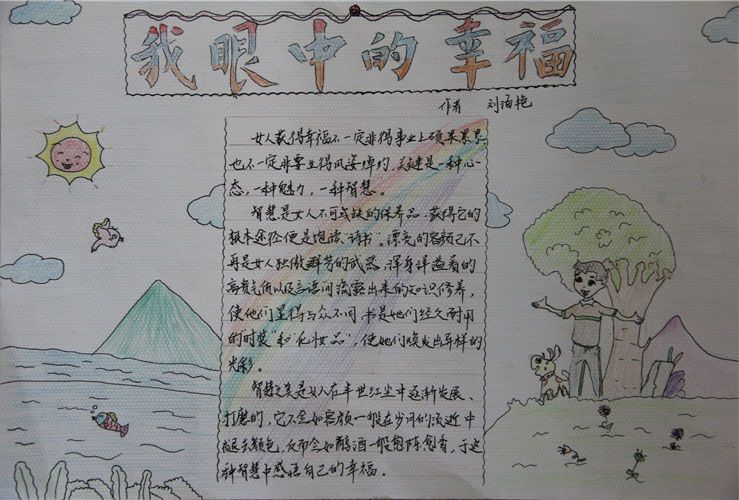 我眼中的幸福
作者 刘海艳
女人获得幸福不一定非得事业上硕果累累
也不一定非要生得风姿绰约,关键是一种心
态,一种魅力,一种智慧。
智慧是女人不可或缺的保养品,获得它的
根本途径便是饱读"诗书"。漂亮的容颜已不
再是女人独傲群芳的武器,浑身洋溢着的
高贵气质以及言语间流露出来的知识修养,
使他们显得与众不同,书是她们经久耐用
的"时装"和"化妆品",使她们焕发出异样的
光彩。
智慧之美是女人在半世红尘中逐渐发展、
打磨的,它不会如容颜一般在岁月的流逝中
褪去颜色,反而会如醇酒一般愈陈愈香,于这
种智慧中感悟自己的幸福。